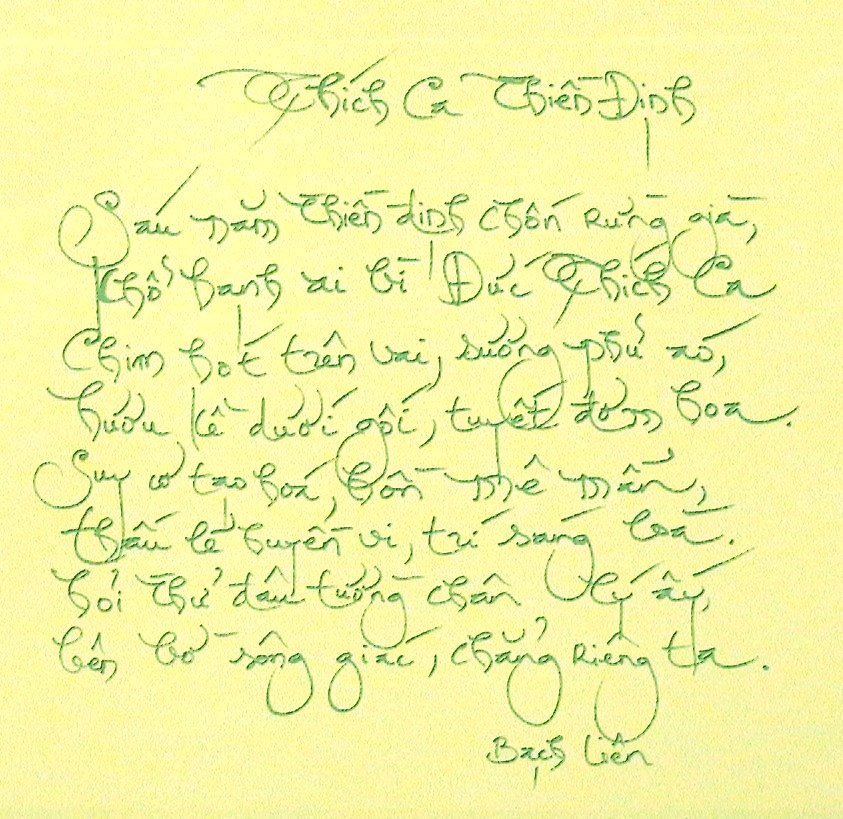 Thích Ca Thiền Định
Sáu năm thiền định chốn rừng già,
Khổ hạnh ai bì Đức Thích Ca
Chim hót trên vai, sương phủ xó,
hươu kề dưới gối, tuyết đơm hoa.
Suy cơ tạo hoá, hồn mê mẩn,
thấu lẽ huyền vi, trí sáng loà.
hỏi thử đâu tường chân lý ấy,
bên bờ sông giác, chẳng riêng ta.
Bạch Liên